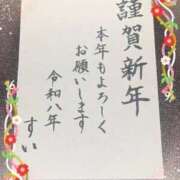 謹賀新年
本年もよろしく
お願いします
令和八年
すい